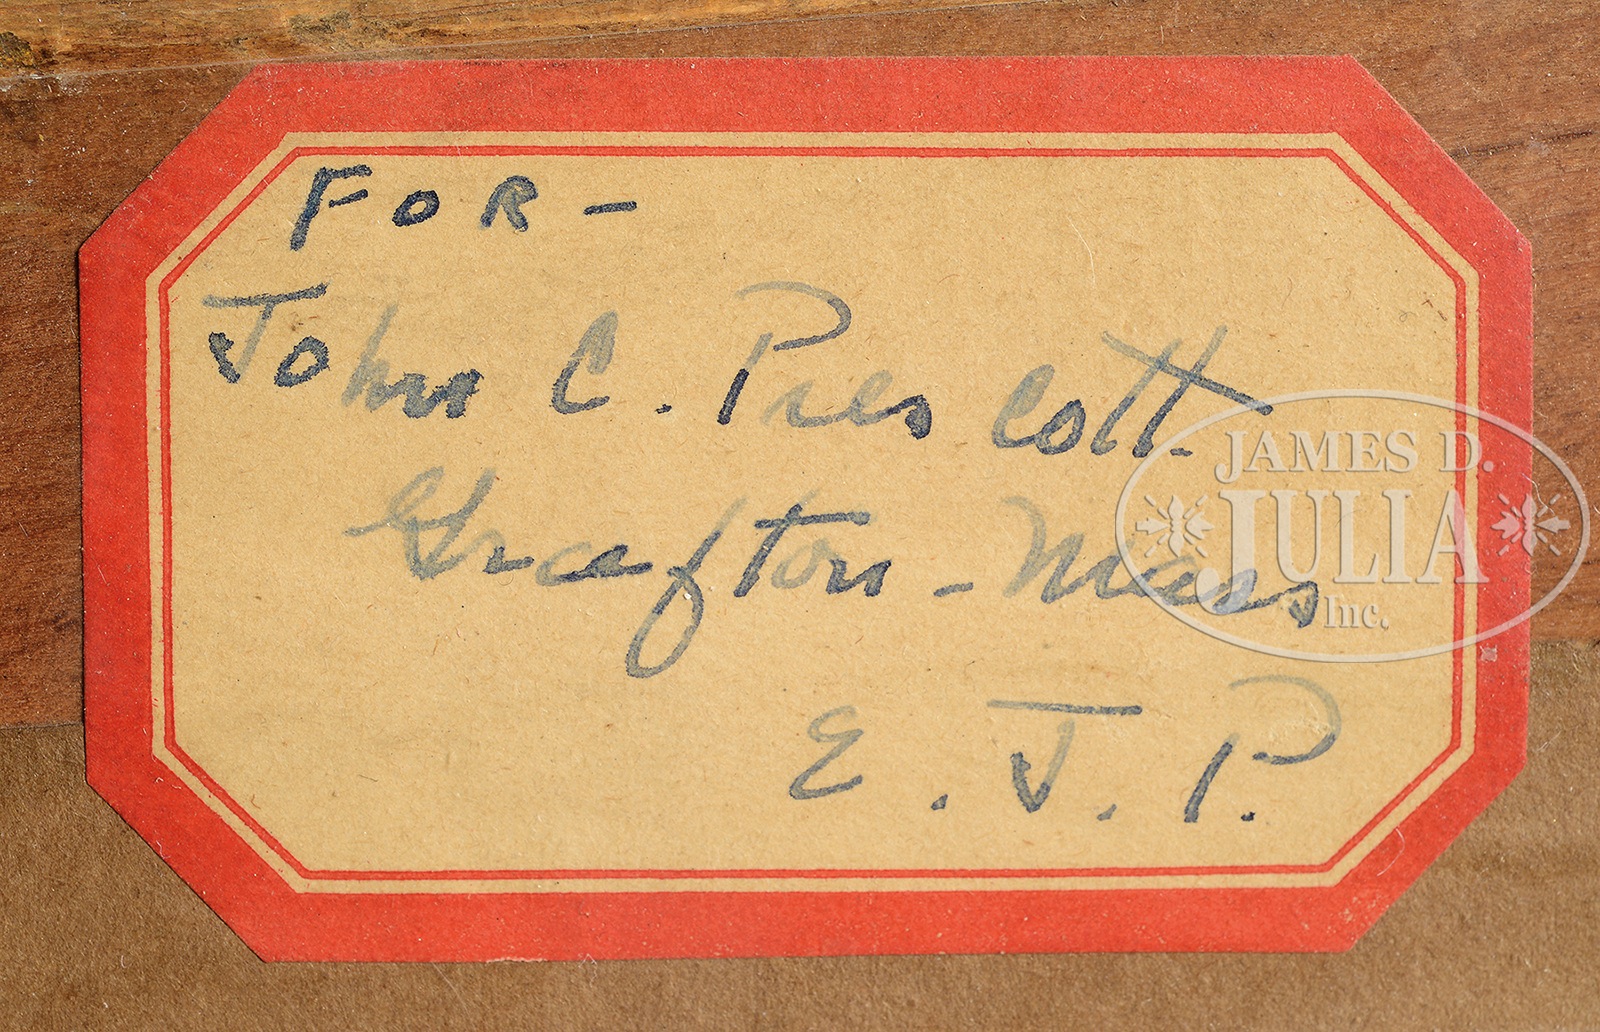 FOR -
John C. Prescott.
Grafton - Mass
E. J. P.
JAMES D.
JULIA
Inc.